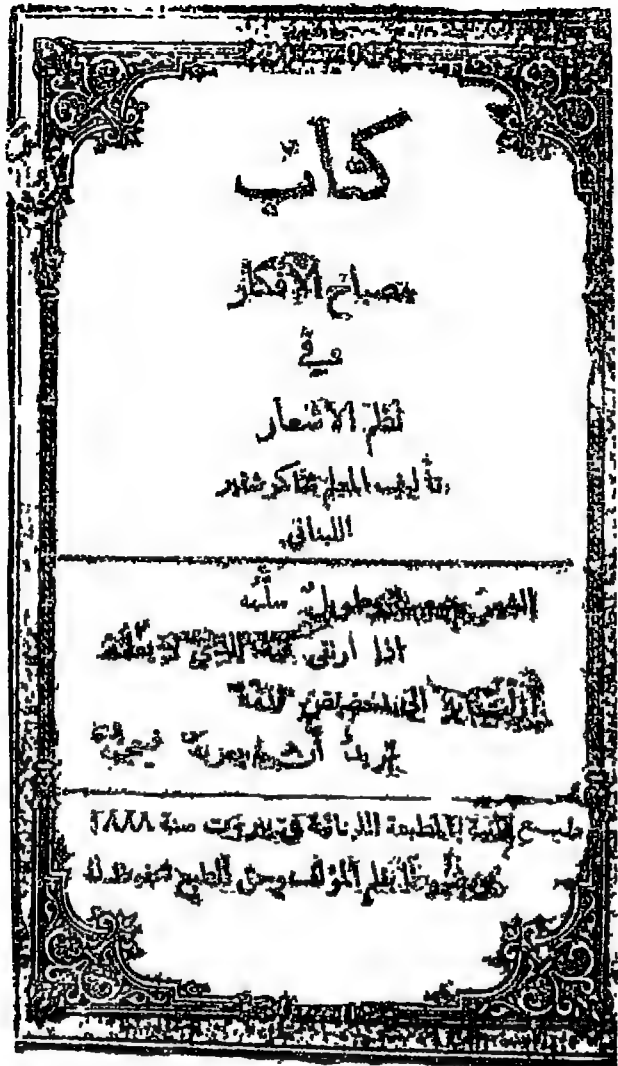 كتاب
مصباح الافكار
في
نظم الاشعار
تأليف المعلم شاكر شقير
اللبناني
الشعر صعب وطويل سلّمه
اذا ارتقى فيه الذي لا يعلمه
زلّت به الى الحضيض قدمه
يريد أن يعربه فيعجمه
طبع بالمطبعة اللبنانية في بيروت سنة ١٨٨٨
بقلم المؤلف وحق الطبع محفوظ له